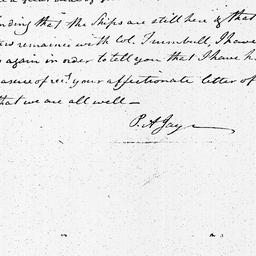 nding that the Ships are still here & that
remaines with Col. Turnbull, I have
again in order to tell you that I have h
easure of rec.g your affectionate letter of
that we are all well —
P. A Jay